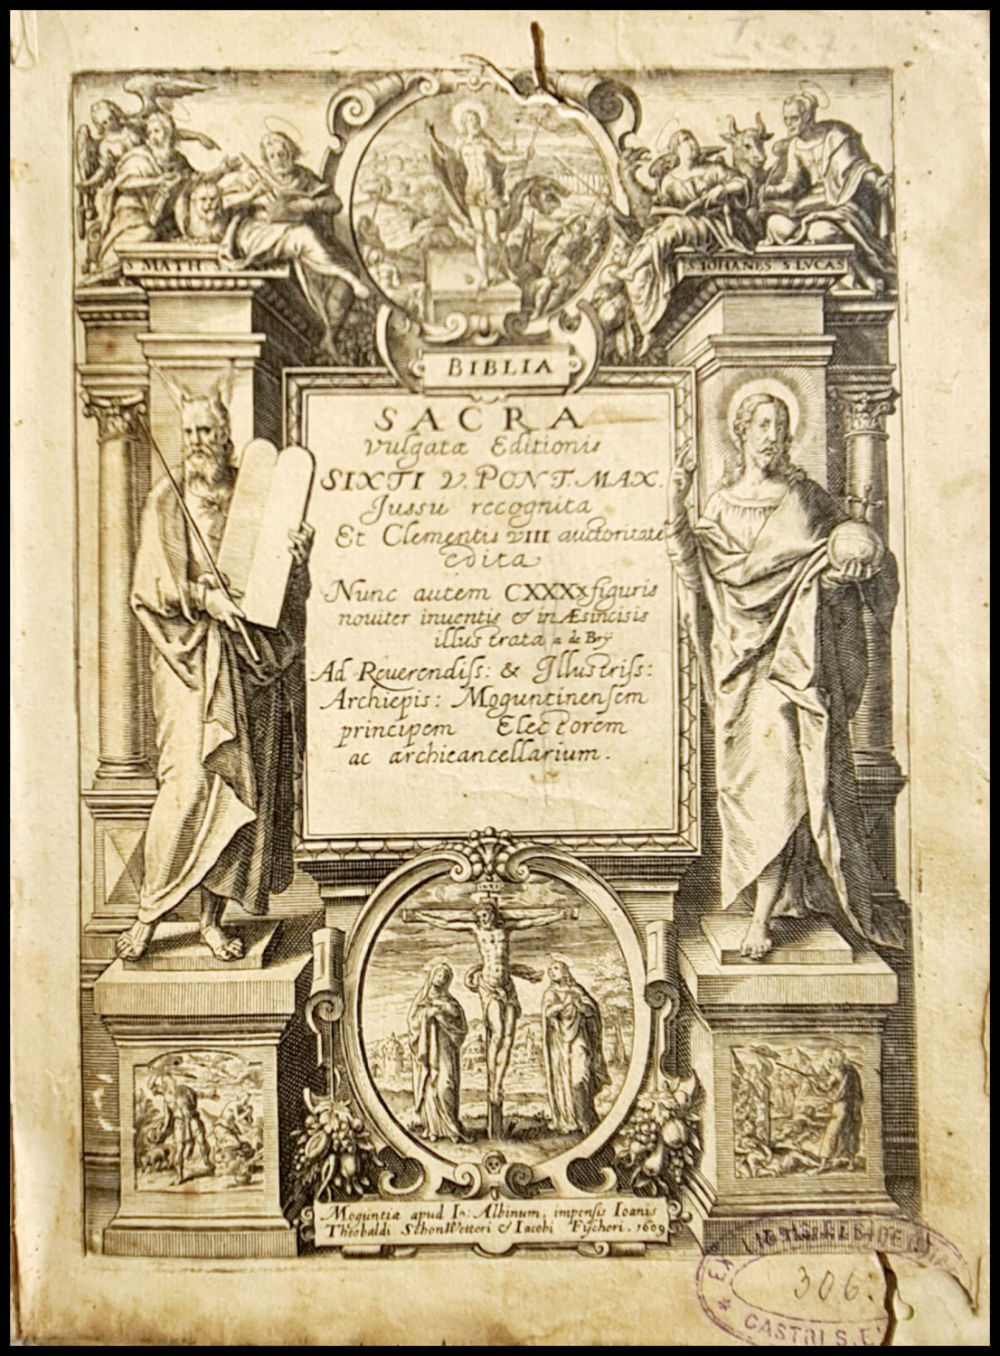 MATH
S. IOHANES S LVCAS
BIBLIA
SACRA
Vulgatæ Editionis
SIXTI V. PONT. MAX.
Jussu recognita
Et Clementis VIII auctoritate
edita
Nunc autem CXXXX figuris
nouiter inuentis & in Æsincisis
illustrata a de Brÿ
Ad Reuerendiſs: & Illustriſs:
Archiepis: Moguntinenſem
principem Electorem
ac archicancellarium.
INRI
Moguntiæ apud Io: Albinum, impensis Ioanis
Theobaldi SchonWetteri & Iacobi Fischeri. 1609
EX
306.
CASTRI S.